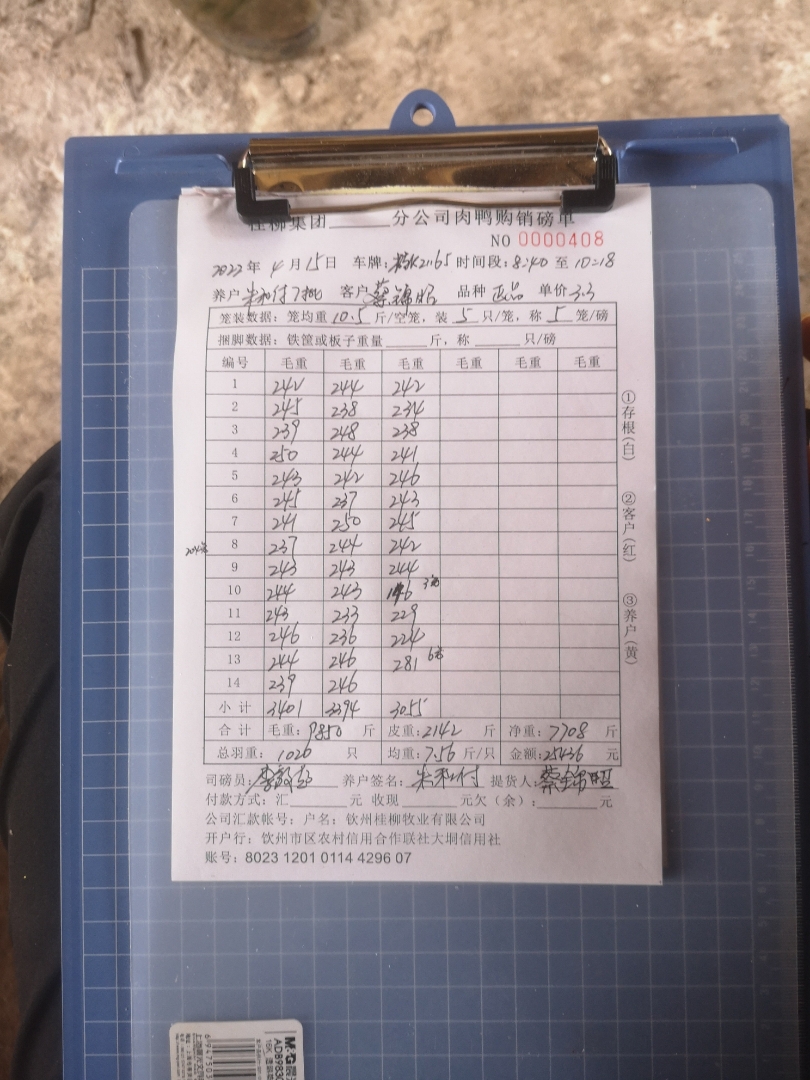 桂柳集团______分公司肉鸭购销磅单
NO 0000408
2022年 4月15日 车牌: 时间段:8:40 至 10:18
养户 客户 蔡锦旺 品种 正品 单价 3.3
笼装数据: 笼均重 10.5 斤/空笼, 装 5 只/笼, 称 5 笼/磅
捆脚数据: 铁筐或板子重量______斤, 称______只/磅
编号 毛重 毛重 毛重 毛重 毛重 毛重
1 242 244 242
2 245 238 234
3 239 248 238
4 250 244 241
5 243 242 246
6 245 237 243
7 241 250 245
204笼
8 237 244 242
9 243 243 244
10 244 243 146 3笼
11 243 233 229
12 246 236 224
13 244 246 281 6笼
14 239 246
小计 3401 3394 3055
合计 毛重: 9850 斤 皮重: 2142 斤 净重: 7708 斤
总羽重: 1020 只 均重: 7.56 斤/只 金额: 25436 元
司磅员: 养户签名: 朱和付 提货人: 蔡锦旺
付款方式: 汇______元 收现______元欠(余):______元
公司汇款帐号: 户名: 钦州桂柳牧业有限公司
开户行: 钦州市区农村信用合作联社大垌信用社
账号: 8023 1201 0114 4296 07
①存根(白)
②客户(红)
③养户(黄)
M&G